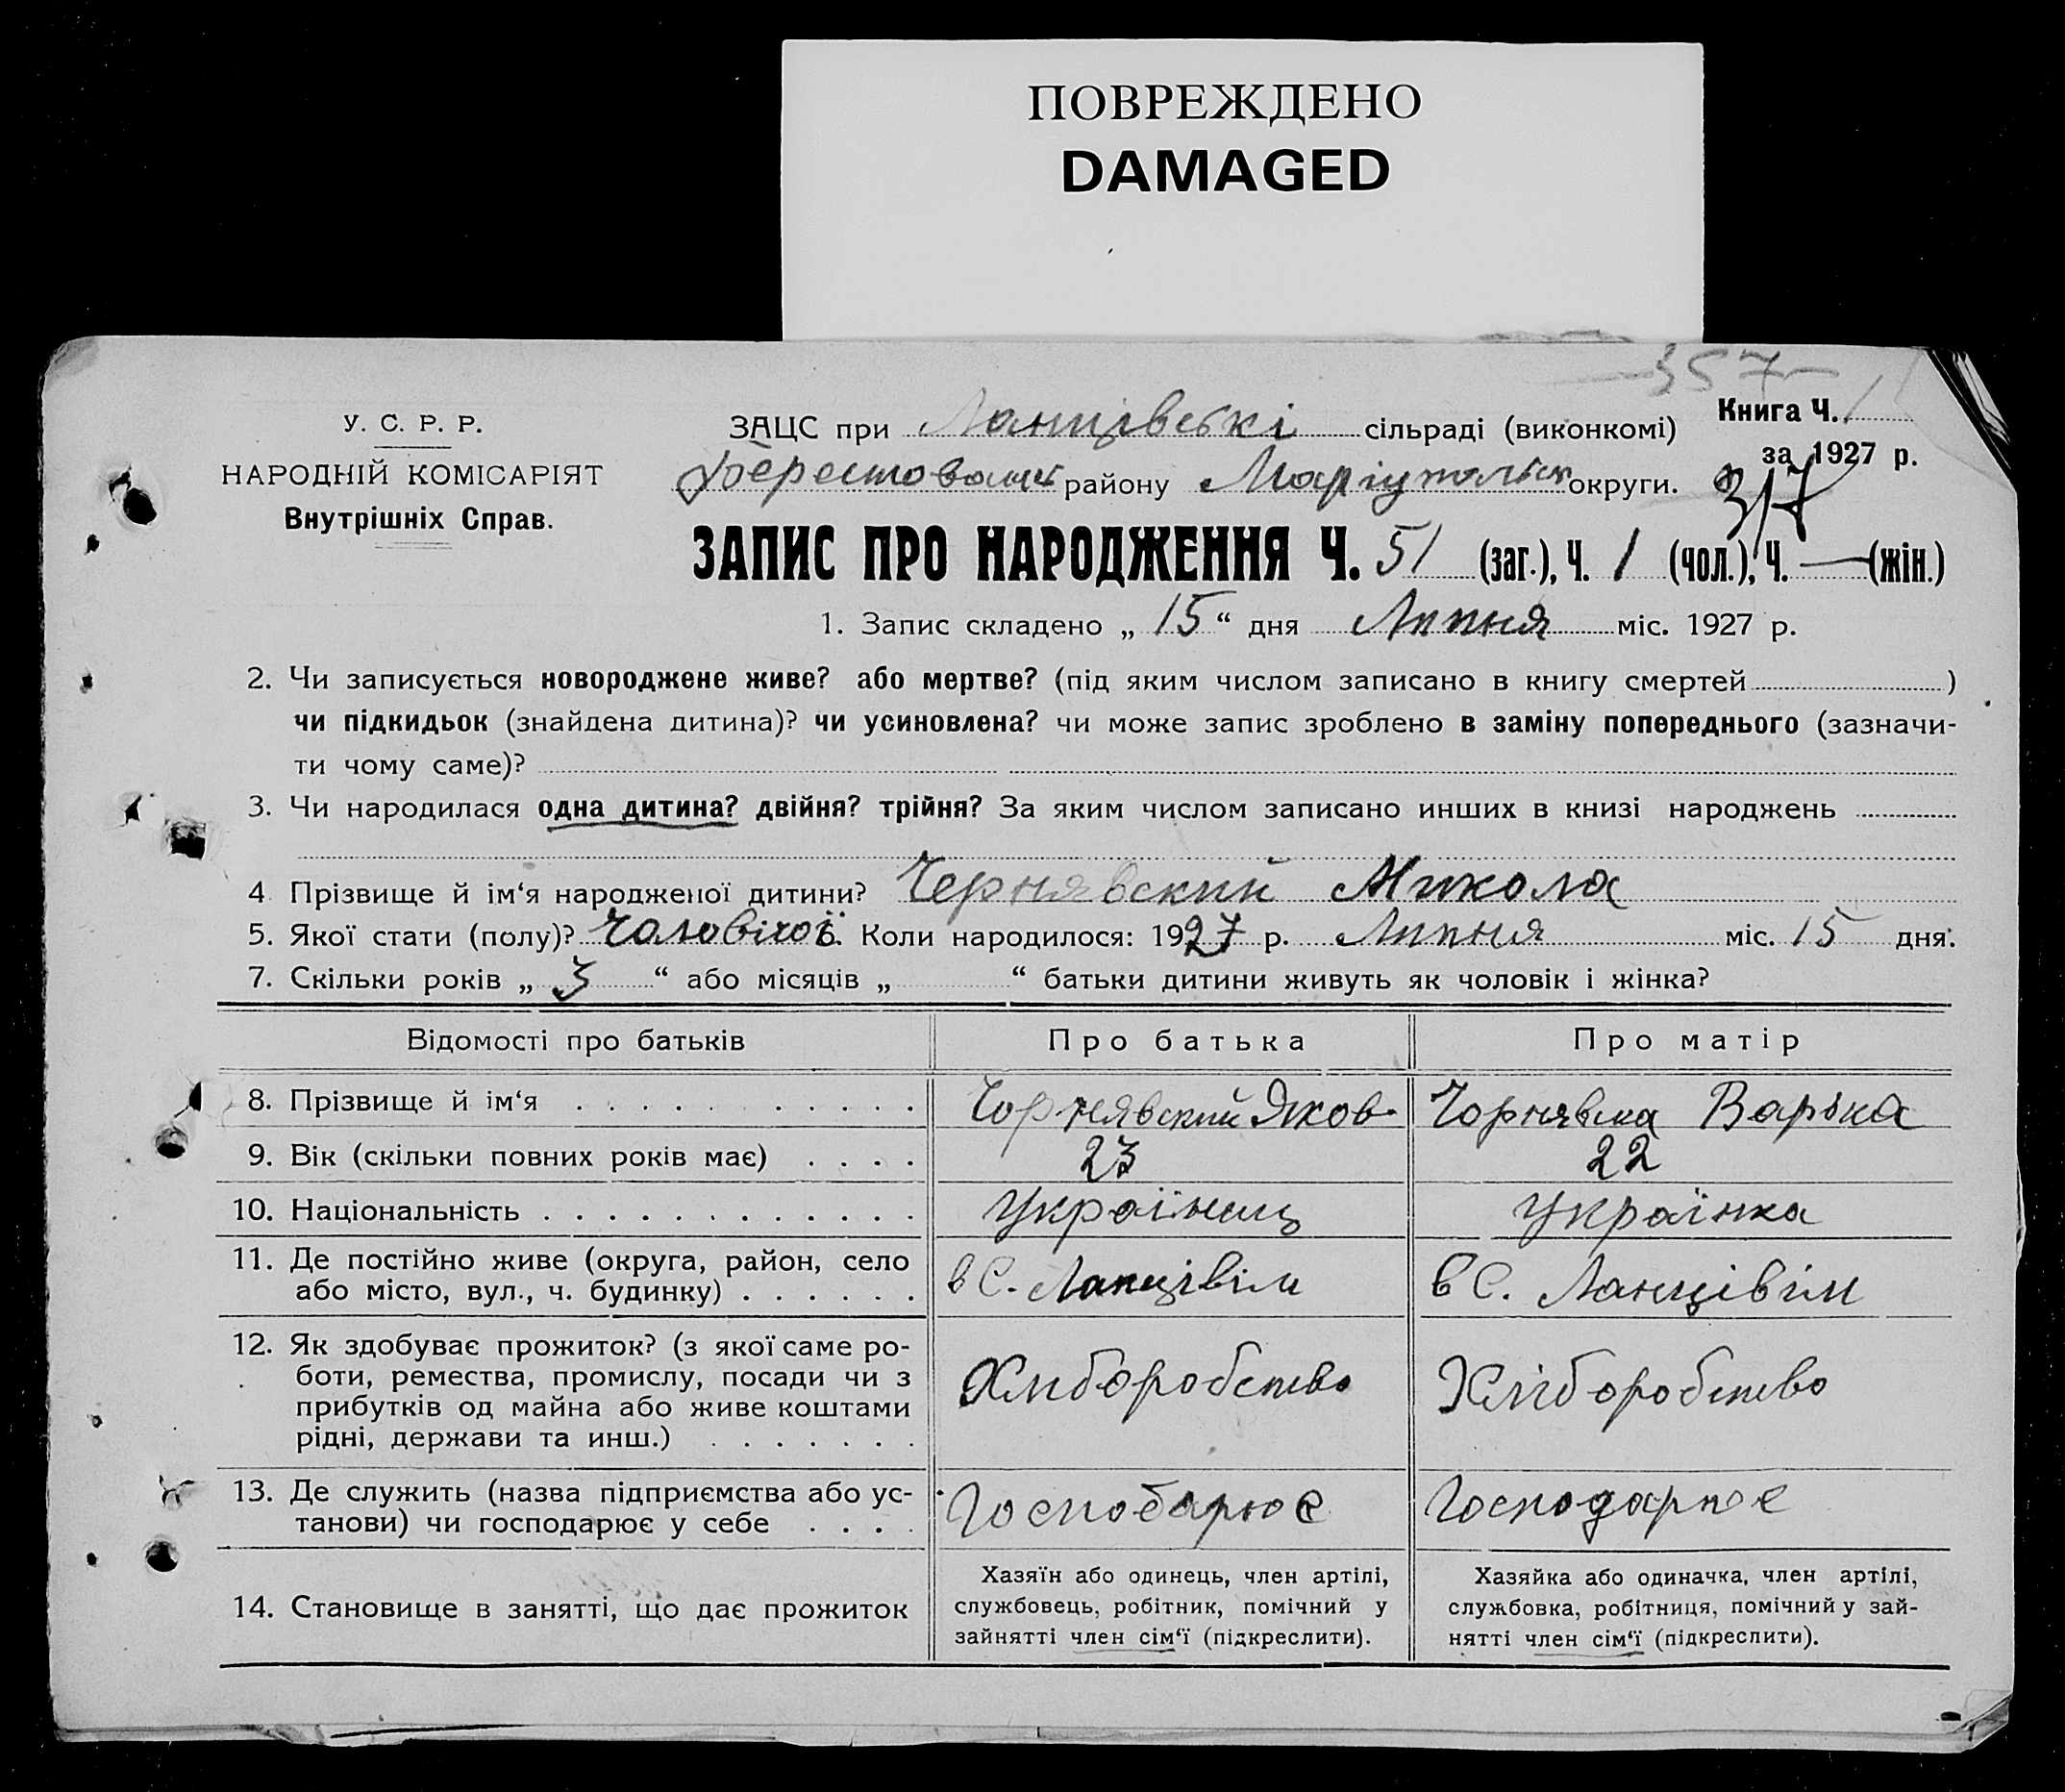 ПОВРЕЖДЕНО
DAMAGED
357
У. С. Р. Р.
НАРОДНІЙ КОМІСАРІЯТ
Внутрішніх Справ.
ЗАЦС при Ланцівські сільраді (виконкомі)
Книга Ч. 1
за 1927 р.
району Маріупольськ округи.
317
ЗАПИС ПРО НАРОДЖЕННЯ Ч. 51 (заг.), Ч. 1 (чол.), Ч. — (жін.)
1. Запис складено „ 15 “ дня Липня міс. 1927 р.
2. Чи записується новороджене живе? або мертве? (під яким числом записано в книгу смертей )
чи підкидьок (знайдена дитина)? чи усиновлена? чи може запис зроблено в заміну попереднього (зазначи-
ти чому саме)?
3. Чи народилася одна дитина? двійня? трійня? За яким числом записано инших в книзі народжень
4 Прізвище й ім‘я народженої дитини? Чернявский Микола
5. Якої стати (полу)? Чоловічої 6. Коли народилося: 1927 р. Липня міс. 15 дня.
7. Скільки років „ 3 “ або місяців „ “ батьки дитини живуть як чоловік і жінка?
Відомості про батьків Про батька Про матір
8. Прізвище й ім‘я Чорнявский Яков Чорнявска Варька
9. Вік (скільки повних років має) 23 22
10. Національність Українец Українка
11. Де постійно живе (округа, район, село
або місто, вул., ч. будинку) в С. Ланцівім в С. Ланцівім
12. Як здобуває прожиток? (з якої саме ро-
боти, ремества, промислу, посади чи з
прибутків од майна або живе коштами
рідні, держави та инш.) Хлиборобство Хліборобство
13. Де служить (назва підприємства або ус-
танови) чи господарює у себе Господарює Господарює
14. Становище в занятті, що дає прожиток
Хазяїн або одинець, член артілі,
службовець, робітник, помічний у
зайнятті член сім‘ї (підкреслити).
Хазяйка або одиначка, член артілі,
службовка, робітниця, помічний у зай-
нятті член сім‘ї (підкреслити).